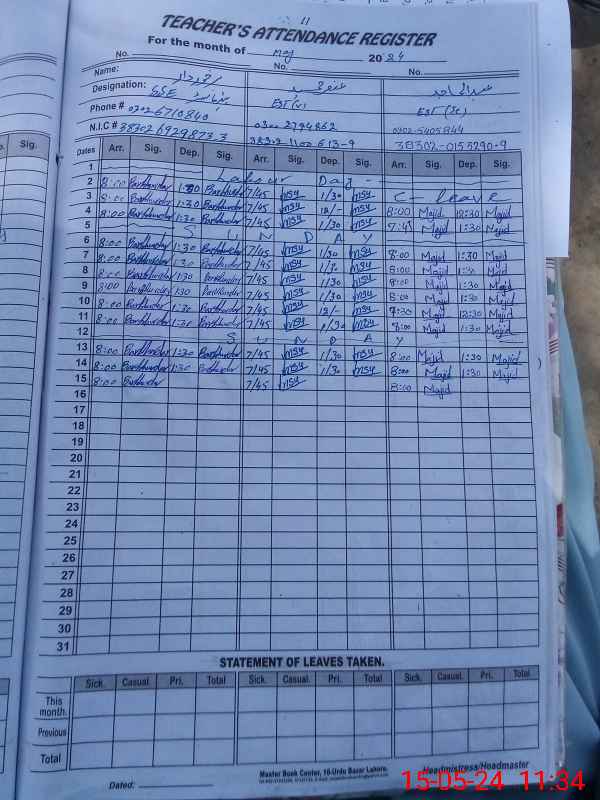 11
TEACHER'S ATTENDANCE REGISTER
For the month of may 2024
No. No. No.
Name:
Designation: SSE EST(v) EST (Sc)
Phone # 0302-6710840 0300 2794862 0302-5405844
N.I.C # 38302 6929873 3 38302-1100613-9 38302-0155290-9
Dates Arr. Sig. Dep. Sig. Arr. Sig. Dep. Sig. Arr. Sig. Dep. Sig.
1 Labour Day
2 8:00 Barkhurdar 1:30 Barkhurdar 7/45 msy 1/30 msy C - leave
3 8:00 Barkhurdar 1:30 Barkhurdar 7/45 msy 12/- msy 8:00 Majid 12:30 Majid
4 8:00 Barkhurdar 1:30 Barkhurdar 7/45 msy 1/30 msy 7:45 Majid 1:30 Majid
5 SUNDAY
6 8:00 Barkhurdar 1:30 Barkhurdar 7/45 msy 1/30 msy 8:00 Majid 1:30 Majid
7 8:00 Barkhurdar 1:30 Barkhurdar 7/45 msy 1/30 msy 8:00 Majid 1:30 Majid
8 8:00 Barkhurdar 1:30 Barkhurdar 7/45 msy 1/30 msy 8:00 Majid 1:30 Majid
9 8:00 Barkhurdar 1:30 Barkhurdar 7/45 msy 1/30 msy 8:00 Majid 1:30 Majid
10 8:00 Barkhurdar 1:30 Barkhurdar 7/45 msy 12/- msy 7:30 Majid 12:30 Majid
11 8:00 Barkhurdar 1:30 Barkhurdar 7/45 msy 1/30 msy 8:00 Majid 1:30 Majid
12 SUNDAY
13 8:00 Barkhurdar 1:30 Barkhurdar 7/45 msy 1/30 msy 8:00 Majid 1:30 Majid
14 8:00 Barkhurdar 1:30 Barkhurdar 7/45 msy 1/30 msy 8:00 Majid 1:30 Majid
15 8:00 Barkhurdar 7/45 msy 8:00 Majid
16
17
18
19
20
21
22
23
24
25
26
27
28
29
30
31
STATEMENT OF LEAVES TAKEN.
Sick. Casual. Pri. Total Sick. Casual. Pri. Total Sick. Casual. Pri. Total
This month.
Previous
Total
Dated: Master Book Center, 16-Urdu Bazar Lahore. Headmistress/Headmaster
15-05-24 11:34